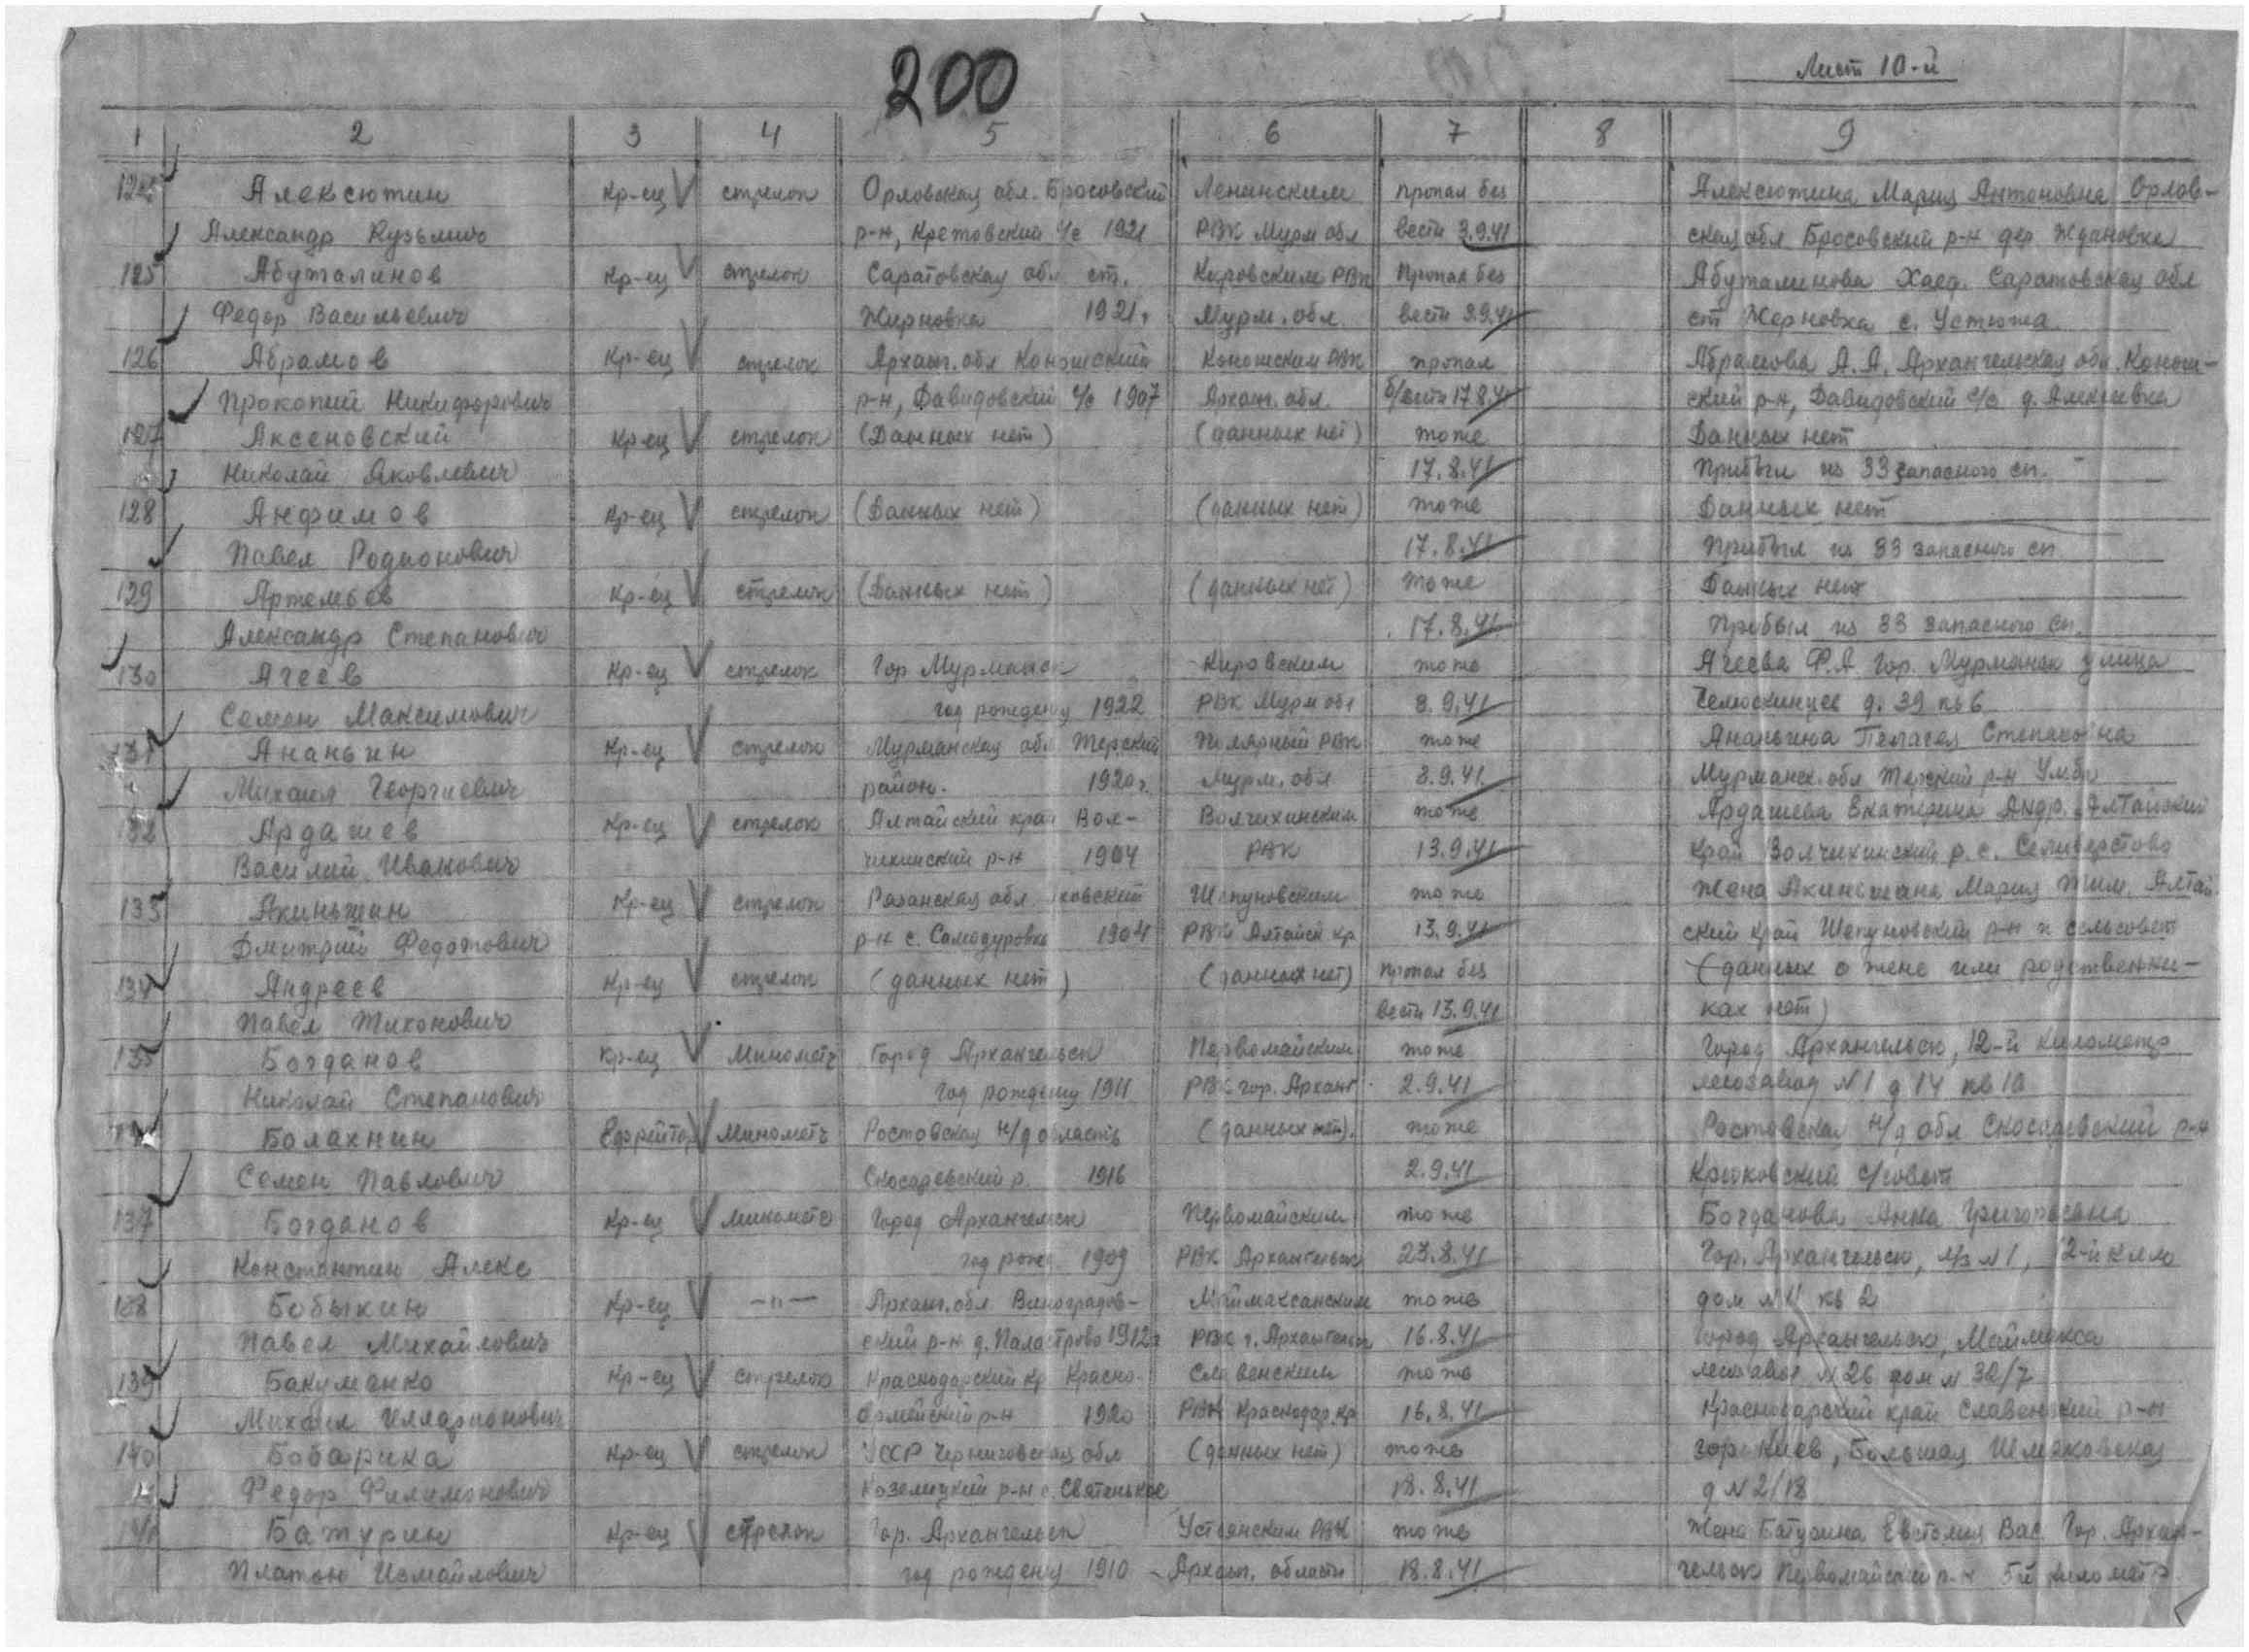 200
Лист 10-й
1 2 3 4 5 6 7 8 9
124 Алексютин Кр-ец стрелок Орловская обл. Бросовский Ленинским пропал без Алексютина Мария Антоновна Орлов-
Александр Кузьмич р-н, Кретовский с/с 1921 РВК Мурм обл вести 3.9.41 ская обл Бросовский р-н дер Ждановка
125 Абуталинов Кр-ец стрелок Саратовская обл ст. Кировским РВК Пропал без Абуталинова Саратовская обл
Федор Васильевич Жирновка 1921г Мурм. обл. вести 3.9.41 ст Жерновка с. Устюжа
126 Абрамов Кр-ец стрелок Арханг. обл Коношский Коношским РВК пропал Абрамова А.А. Архангельская обл. Конош-
Прокопий Никифорович р-н, Давидовский с/с 1907 Арханг. обл. б/вести 17.8.41 ский р-н, Давидовский с/с д. Алексеевка
127 Аксеновский Кр-ец стрелок (Данных нет) (данных нет) тоже Данных нет
Николай Яковлевич 17.8.41 Прибыл из 33 запасного сп.
128 Анфимов Кр-ец стрелок (Данных нет) (данных нет) тоже Данных нет
Павел Родионович 17.8.41 Прибыл из 33 запасного сп
129 Артемьев Кр-ец стрелок (Данных нет) (данных нет) тоже Данных нет
Александр Степанович 17.8.41 Прибыл из 33 запасного сп.
130 Агеев Кр-ец стрелок Гор Мурманск Кировским тоже Агеева Ф.А. гор. Мурманск улица
Семен Максимович год рождения 1922 РВК Мурм обл 3.9.41 Челюскинцев д. 39 кв 6
131 Ананьин Кр-ец стрелок Мурманская обл Терский Полярный РВК тоже Ананьина Пелагея Степановна
Михаил Георгиевич район. 1920г. Мурм. обл 3.9.41 Мурманск. обл Терский р-н Умба
132 Ардашев Кр-ец стрелок Алтайский край Вол- Волчихинским тоже Ардашева Екатерина Андр. Алтайский
Василий Иванович чихинский р-н 1904 РВК 13.9.41 край Волчихинский р. с. Селиверстово
133 Акиньшин Кр-ец стрелок Рязанская обл ковский Шипуновским тоже Жена Акиньшина Мария Тим. Алтай
Дмитрий Федотович р-н с. Самодуровка 1904 РВК Алтайск кр 13.9.41 ский край Шепуновский р-н сельсовет
134 Андреев Кр-ец стрелок (данных нет) (данных нет) Пропал без (данных о жене или родственни-
Павел Тихонович вести 13.9.41 ках нет)
135 Богданов Кр-ец Минометч Город Архангельск Первомайским тоже Город Архангельск, 12-й километр
Николай Степанович год рождения 1911 РВК гор. Арханг. 2.9.41 лесозавод №1 д 14 кв 10
Балахнин Ефрейтор Минометч Ростовская н/д область (данных нет). тоже Ростовская н/д обл Скосаревский р-н
Семен Павлович Скосаревский р. 1916 2.9.41 Крюковский с/совет
137 Богданов Кр-ец минометч Город Архангельск Первомайским тоже Богданова Анна Григорьевна
Константин Алекс год рожд. 1909 РВК Архангельск 23.8.41 Гор. Архангельск, л/з №1, 12-й клм
138 Бобыкин Кр-ец —"— Арханг. обл Виноградов- Маймаксанским тоже дом №11 кв 2
Павел Михайлович ский р-н д. 1912г РВК г. Архангельск 16.8.41 Город Архангельск, Маймакса
139 Бакуманко Кр-ец стрелок Краснодарский кр Красно- Славенским тоже лесозавод №26 дом № 32/7
Михаил Илларионович Армейский р-н 1920 РВК Краснодар. кр 16.8.41 Краснодарский край Славенский р-н
140 Бобарика Кр-ец стрелок УССР Черниговская обл (данных нет) тоже гор Киев, Большая
Федор Филимонович Козелецкий р-н с. 18.8.41 д №2/18
Батурин Кр-ец стрелок Гор. Архангельск Устьянским РВК тоже Жена Батурина Евстолия Вас. Гор. Архан-
Платон Измайлович год рождения 1910 Арханг. области 18.8.41 гельск Первомайский р-н 5й километр